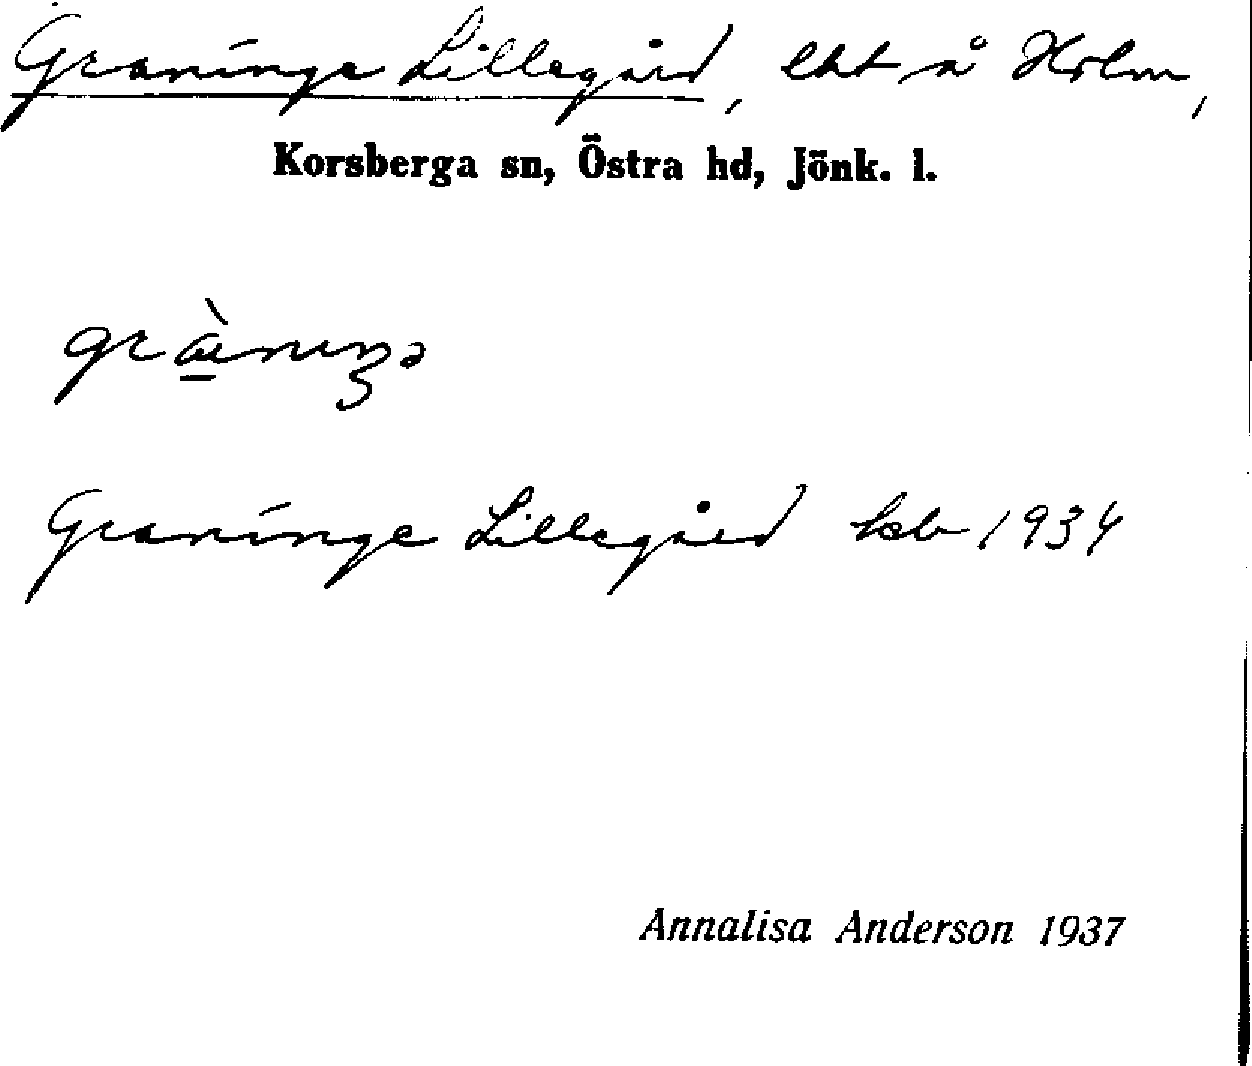 Graninge Lillegård, lht å Holm,
Korsberga sn, Östra hd, Jönk. l.
Graninge Lillegård ksb 1934
Annalisa Anderson 1937